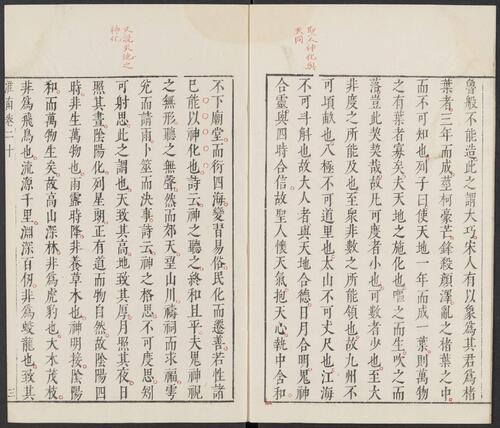 聖人神化與
天同
魯般不能造此之謂大巧宋人有以象為其君為楮
葉者三年而成莖柯豪芒鋒殺顏澤亂之楮葉之中
而不可知也列子曰使天地一年而成一葉則萬物
之有葉者寡矣夫天地之施化也嘔之而生吹之而
落豈此契契哉故凡可度者小也可數者少也至大
非度之所能及也至眾非數之所能領也故九州不
可頃畝也八極不可道里也太山不可丈尺也江海
不可斗斛也故大人者與天地合德日月合明鬼神
合靈與四時合信故聖人懷天氣抱天心執中含和
又說天地之
神化
不下廟堂而衍四海變習易俗民化而遷善若性諸
己能以神化也詩云神之聽之終和且平夫鬼神視
之無形聽之無聲然而郊天望山川禱祠而求福雩
兌而請雨卜筮而決事詩云神之格思不可度思矧
可射思此之謂也天致其高地致其厚月照其夜日
照其晝陰陽化列星朗正有道而物自然故陰陽四
時非生萬物也雨露時降非養草木也神明接陰陽
和而萬物生矣故高山深林非為虎豹也大木茂枝
非為飛鳥也流源千里淵深百仞非為蛟龍也致其
淮南卷二十
三